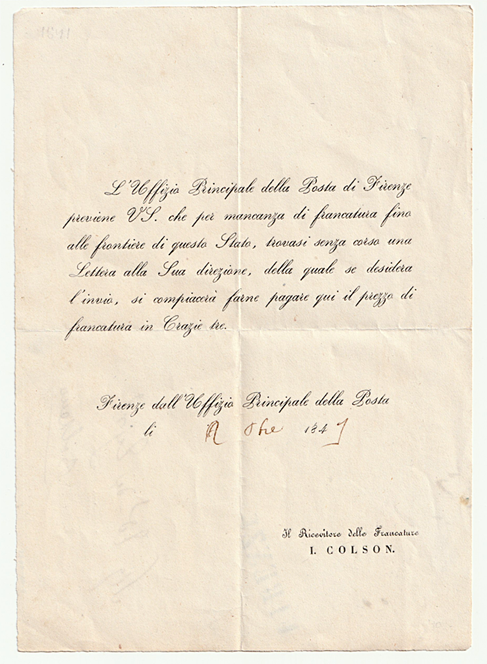 L'Uffizio Principale della Posta di Firenze
previene V.S. che per mancanza di francatura fino
alle frontiere di questo Stato, trovasi senza corso una
Lettera alla Sua direzione, della quale se desidera
l'invio, si compiacerà farne pagare qui il prezzo di
francatura in Crazie tre.
Firenze dall'Uffizio Principale della Posta
li 184
Il Ricevitore delle Francature
I. COLSON.